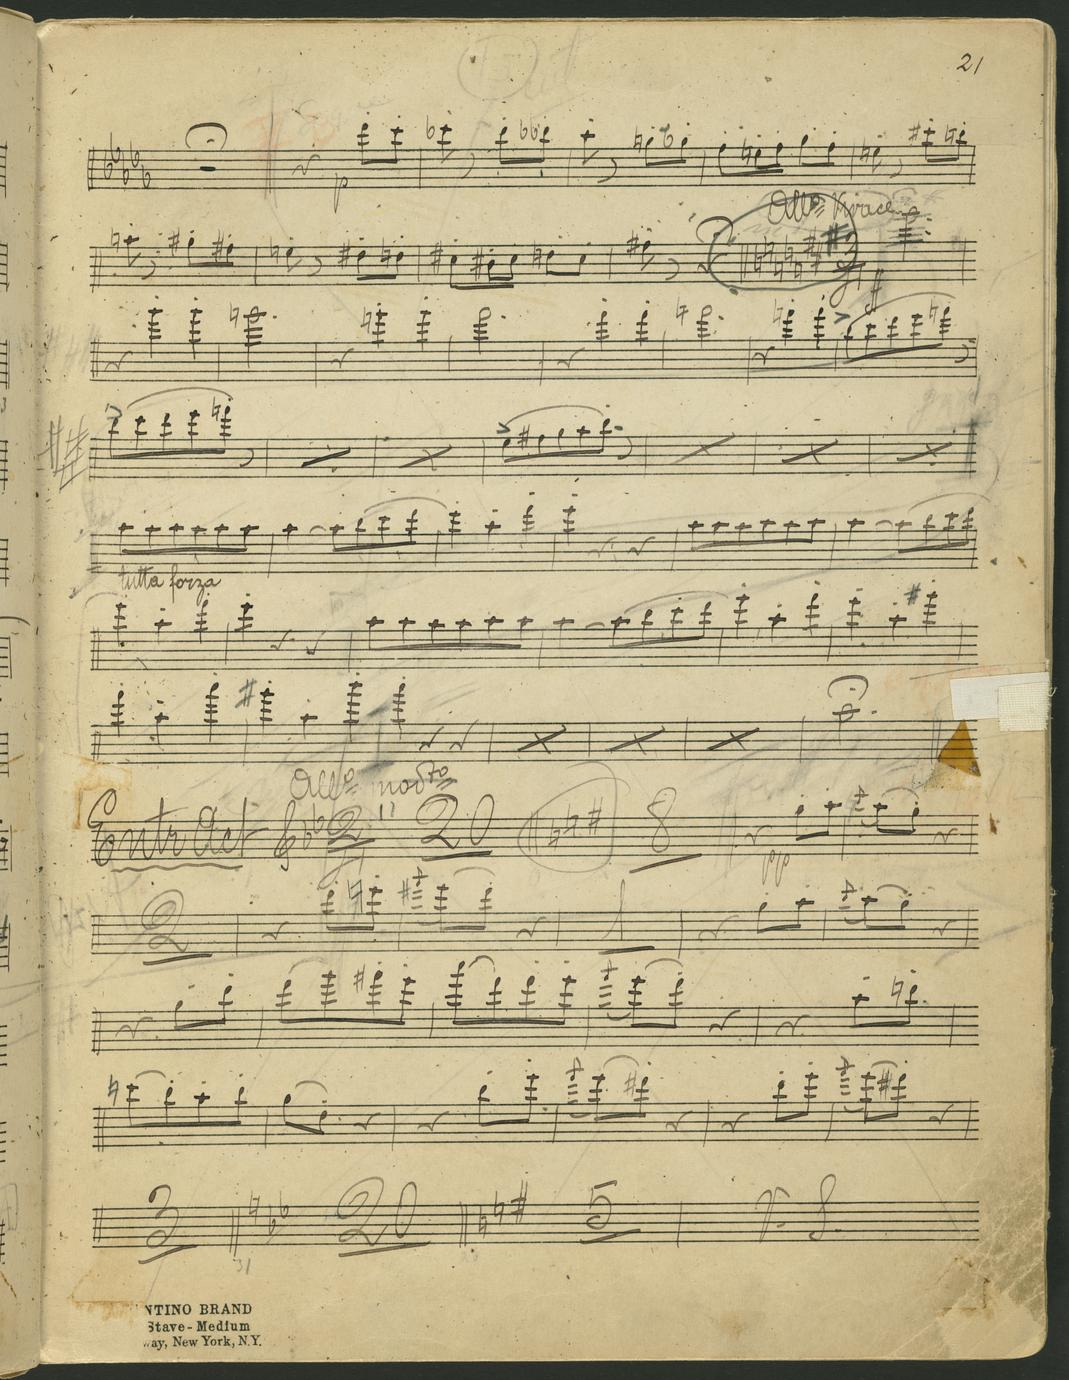 21
p
Allo Vivace
ff
tutta forza
Allo modto
Entr'Act 2 20 8
pp
2 1
3 20 5 V. S.
31
NTINO BRAND
Stave - Medium
way, New York, N.Y.